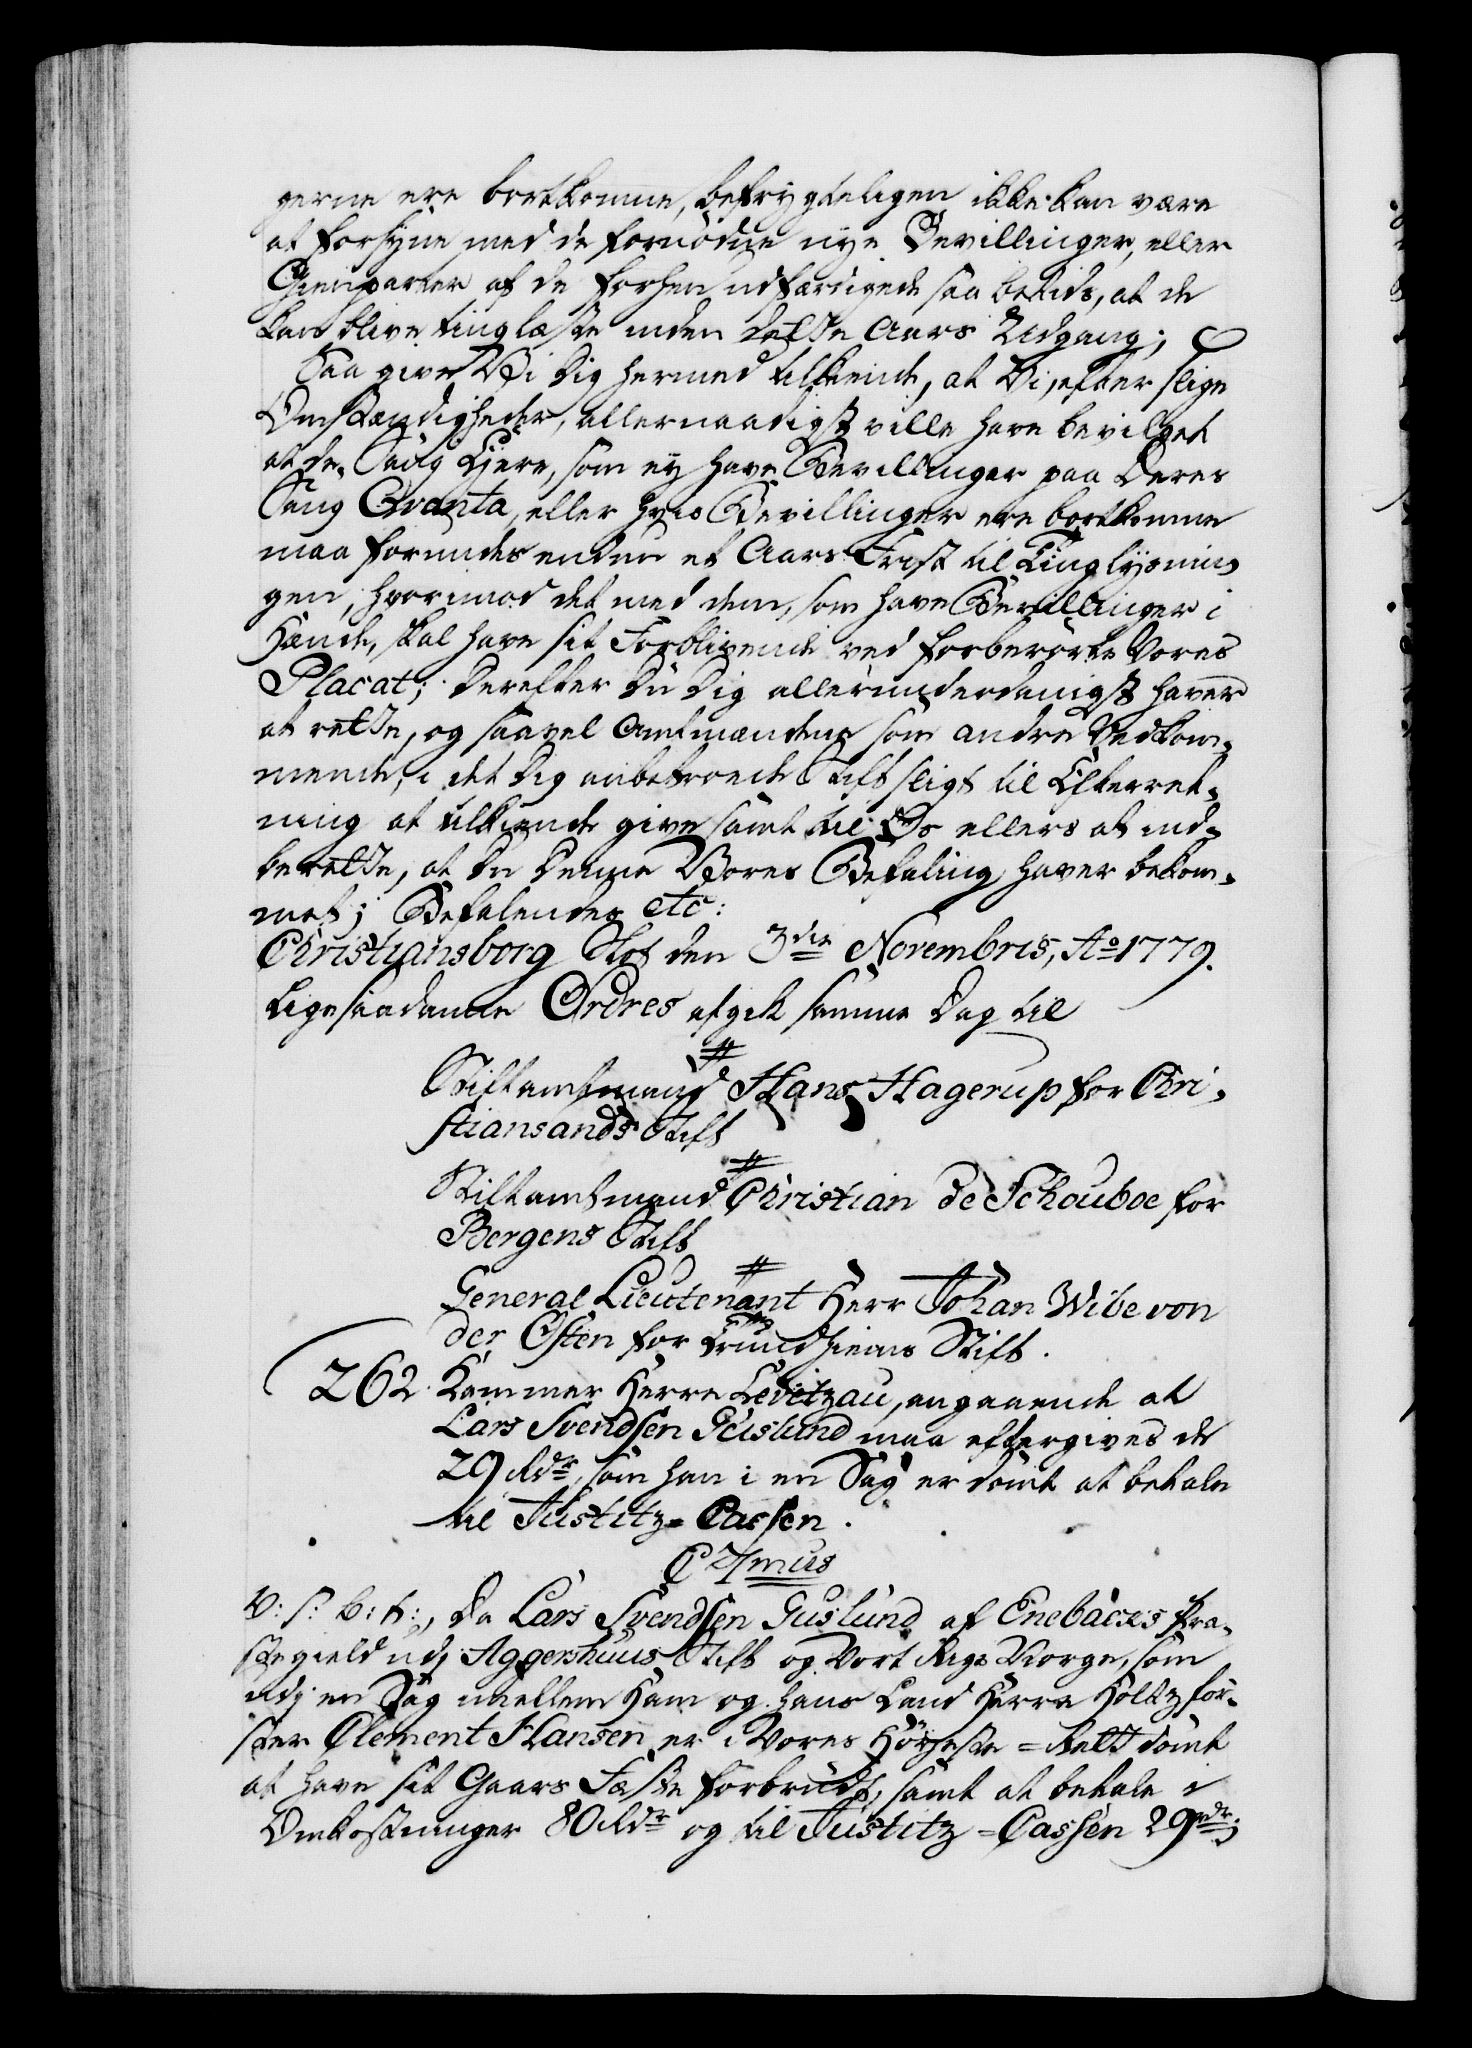 gerne ere bortkomne, befrygteligen ikke kan være
at forsyne med de fornødne nye Bevillinger, eller
Gienparter af de forhen udfærdigede saa betids, at de
kan blive tinglæste inden dette Aars Udgang;
Saa give Vi Dig hermed tilkiende, at Vi, efter slige
Omstændigheder, allernaadigst ville have bevilget
at de Saug Ejere, som ey have Bevillinger paa Deres
Saug Qvanta, eller hvis Bevillinger ere bortkomne
maa forundes endnu et Aars Frist til Tinglysnin,
gen, hvorimod det med dem, som have Bevillinger i
Hænde, skal have sit Forblivende ved forberørte Vores
Placat; Derefter Du Dig allerunderdanigst haver
at rette, og saavel Amtmændene som andre Vedkom,
mende, i det Dig anbetroede Stift sligt til Efterret,
ning at tilkiende give samt til Os ellers at ind,
berette, at Du denne Vores Befaling haver bekom,
met; Befalendes etc:
Christiansborg Slot den 3die Novembris, Ao 1779.
Ligesaadanne Ordres afgik samme Dag til
#
Stiftamtmand Hans Hagerup for Chri,
stiansands Stift
#
Stiftamtmand Christian de Schouboe for
Bergens Stift
#
General Lieutenant Herr Johan Wibe von
der Osten for Trundhiems Stift.
262. Kammer Herre Levetzau, angaaende at
Lars Svendsen Guslund maa eftergives de
29 Rdr, som han i en Sag er dømt at betale
til Justitz-Cassen.
C 7mus
V: s: b: t:, Da Lars Svendsen Guslund af Enebacks Præ,
stegield udj Aggershuus Stift og Vort Rige Norge, som
udj en Sag imellem Ham og hans Land Herre Holtzfor,
ster Clement Hansen er i Vores Høyeste-Rett dømt
at have sit Gaars Fæste forbrudt, samt at betale i
Omkostninger 80 Rdr og til Justitz-Cassen 29 rdr;